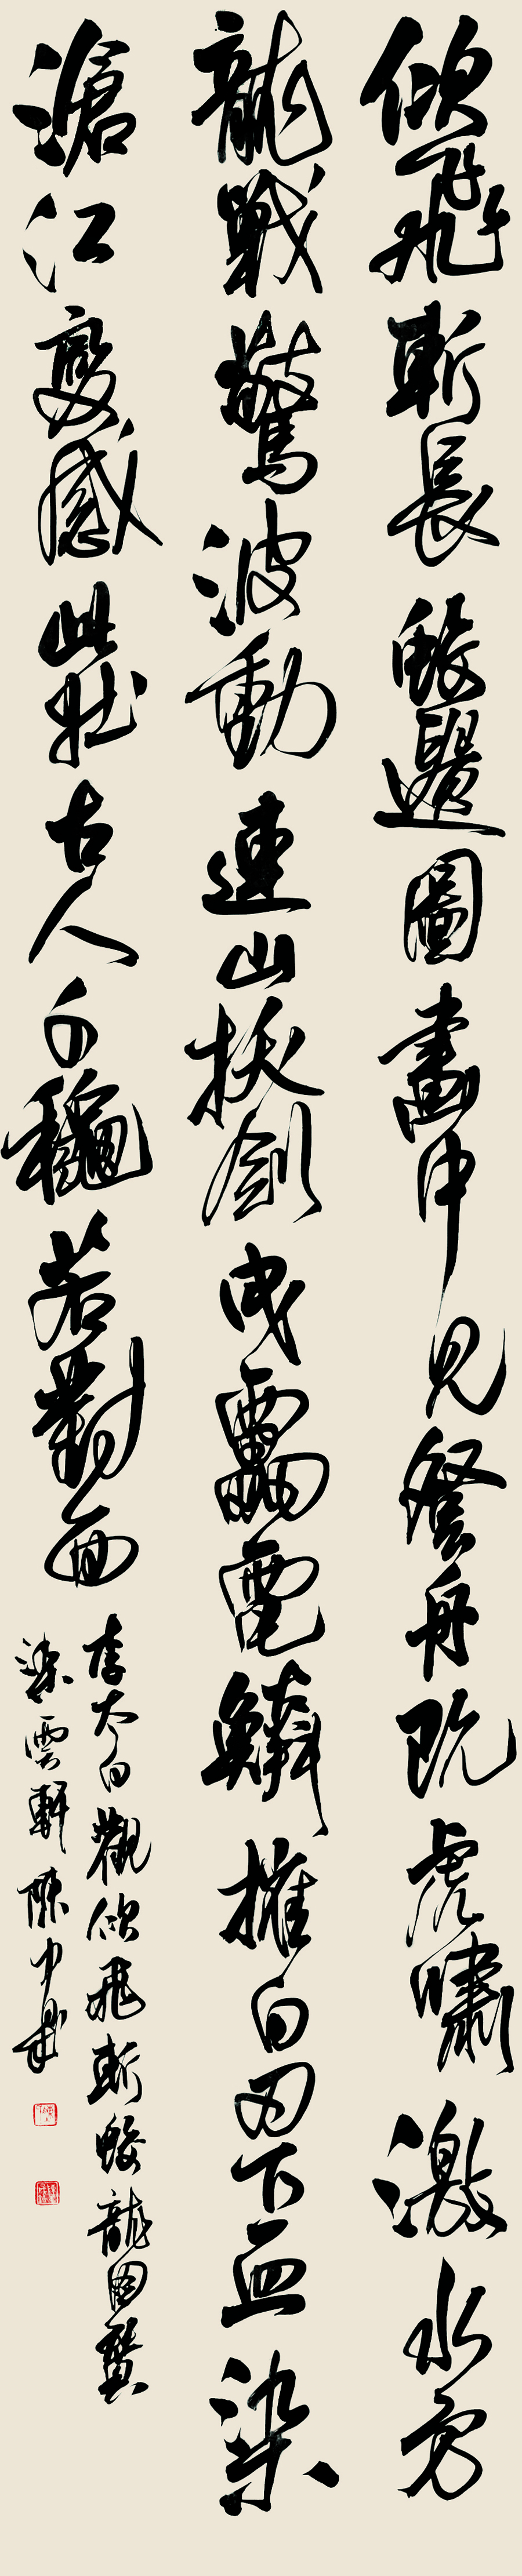 佽飛斬長蛟遺圖畫中見登舟既虎嘯激水方
龍戰驚波動連山拔劍曳靁電鱗摧白刃下血染
滄江變感此壯古人千穐若對面
李太白觀佽飛斬蛟龍圖贊
染雲軒陳中